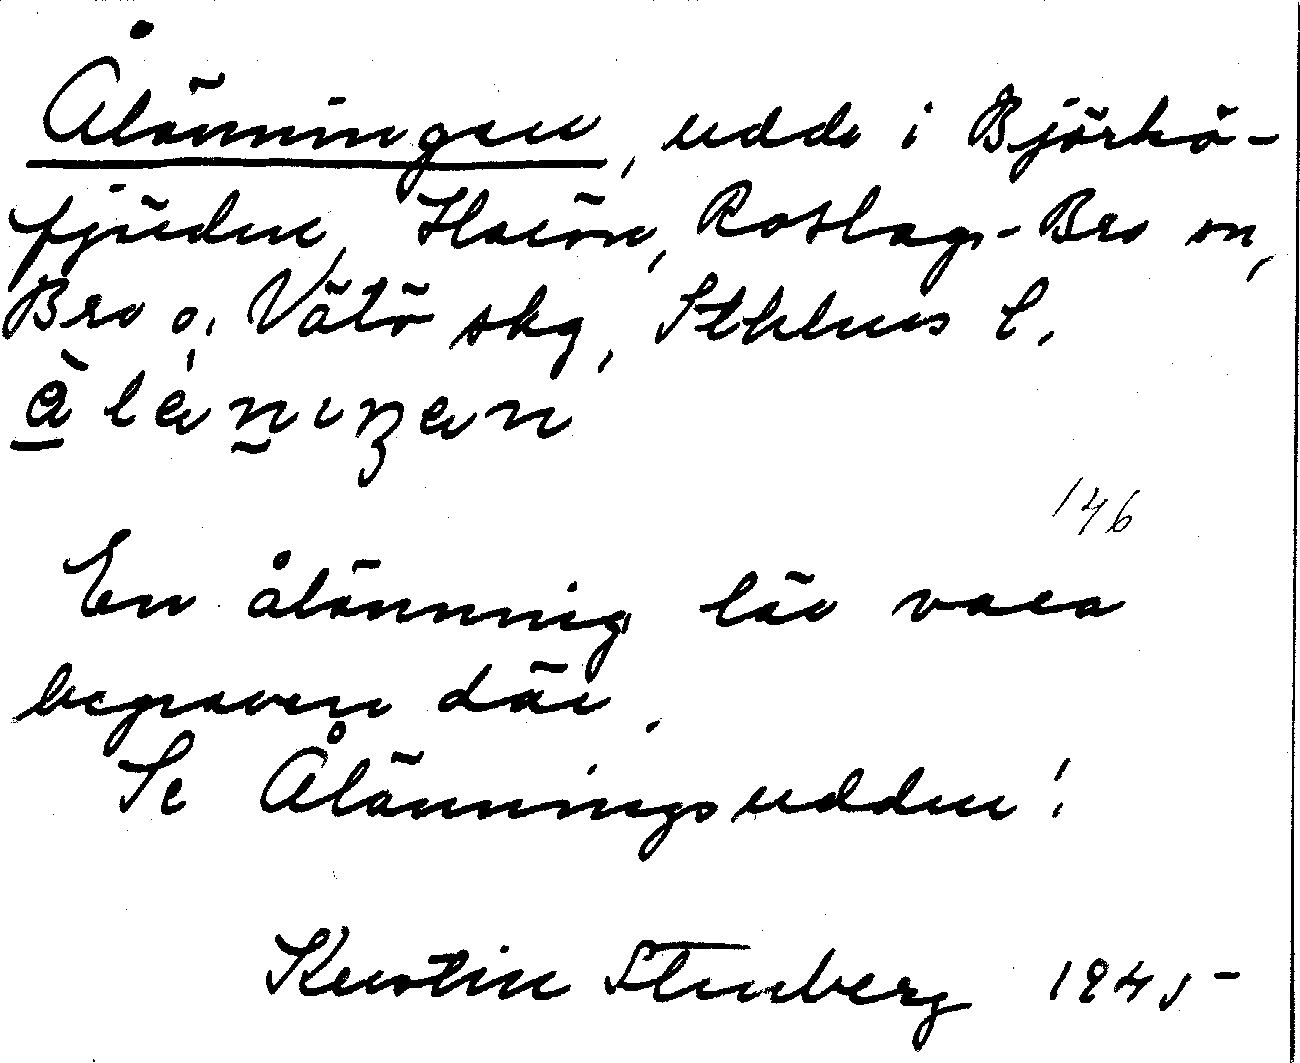 Ålänningen, udde i Björkö-
fjärden, Harön, Roslags-Bro sn,
Bro o. Vätö skg, Sthlms l.
En ålänning lär vara
begraven där.
Se Ålänningsudden!
146
Kerstin Stenberg 1945